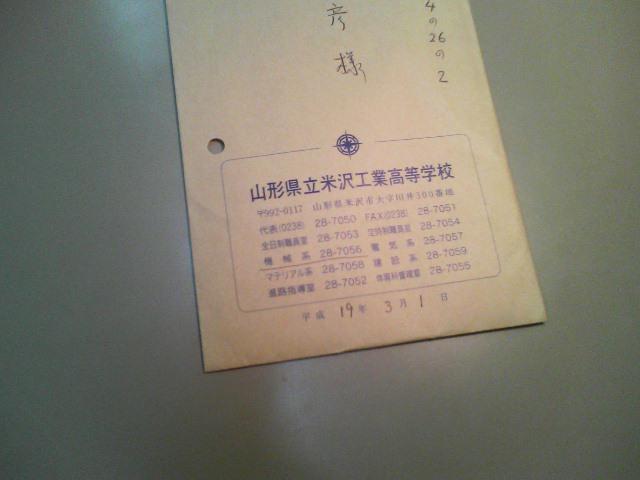 4の26の2
彦様
山形県立米沢工業高等学校
〒992-0117 山形県米沢市大字川井300番地
代表(0238) 28-7050 FAX(0238) 28-7051
全日制職員室 28-7053 定時制職員室 28-7054
機械系 28-7056 電気系 28-7057
マテリアル系 28-7058 建設系 28-7059
進路指導室 28-7052 体育科管理室 28-7055
平成19年3月1日